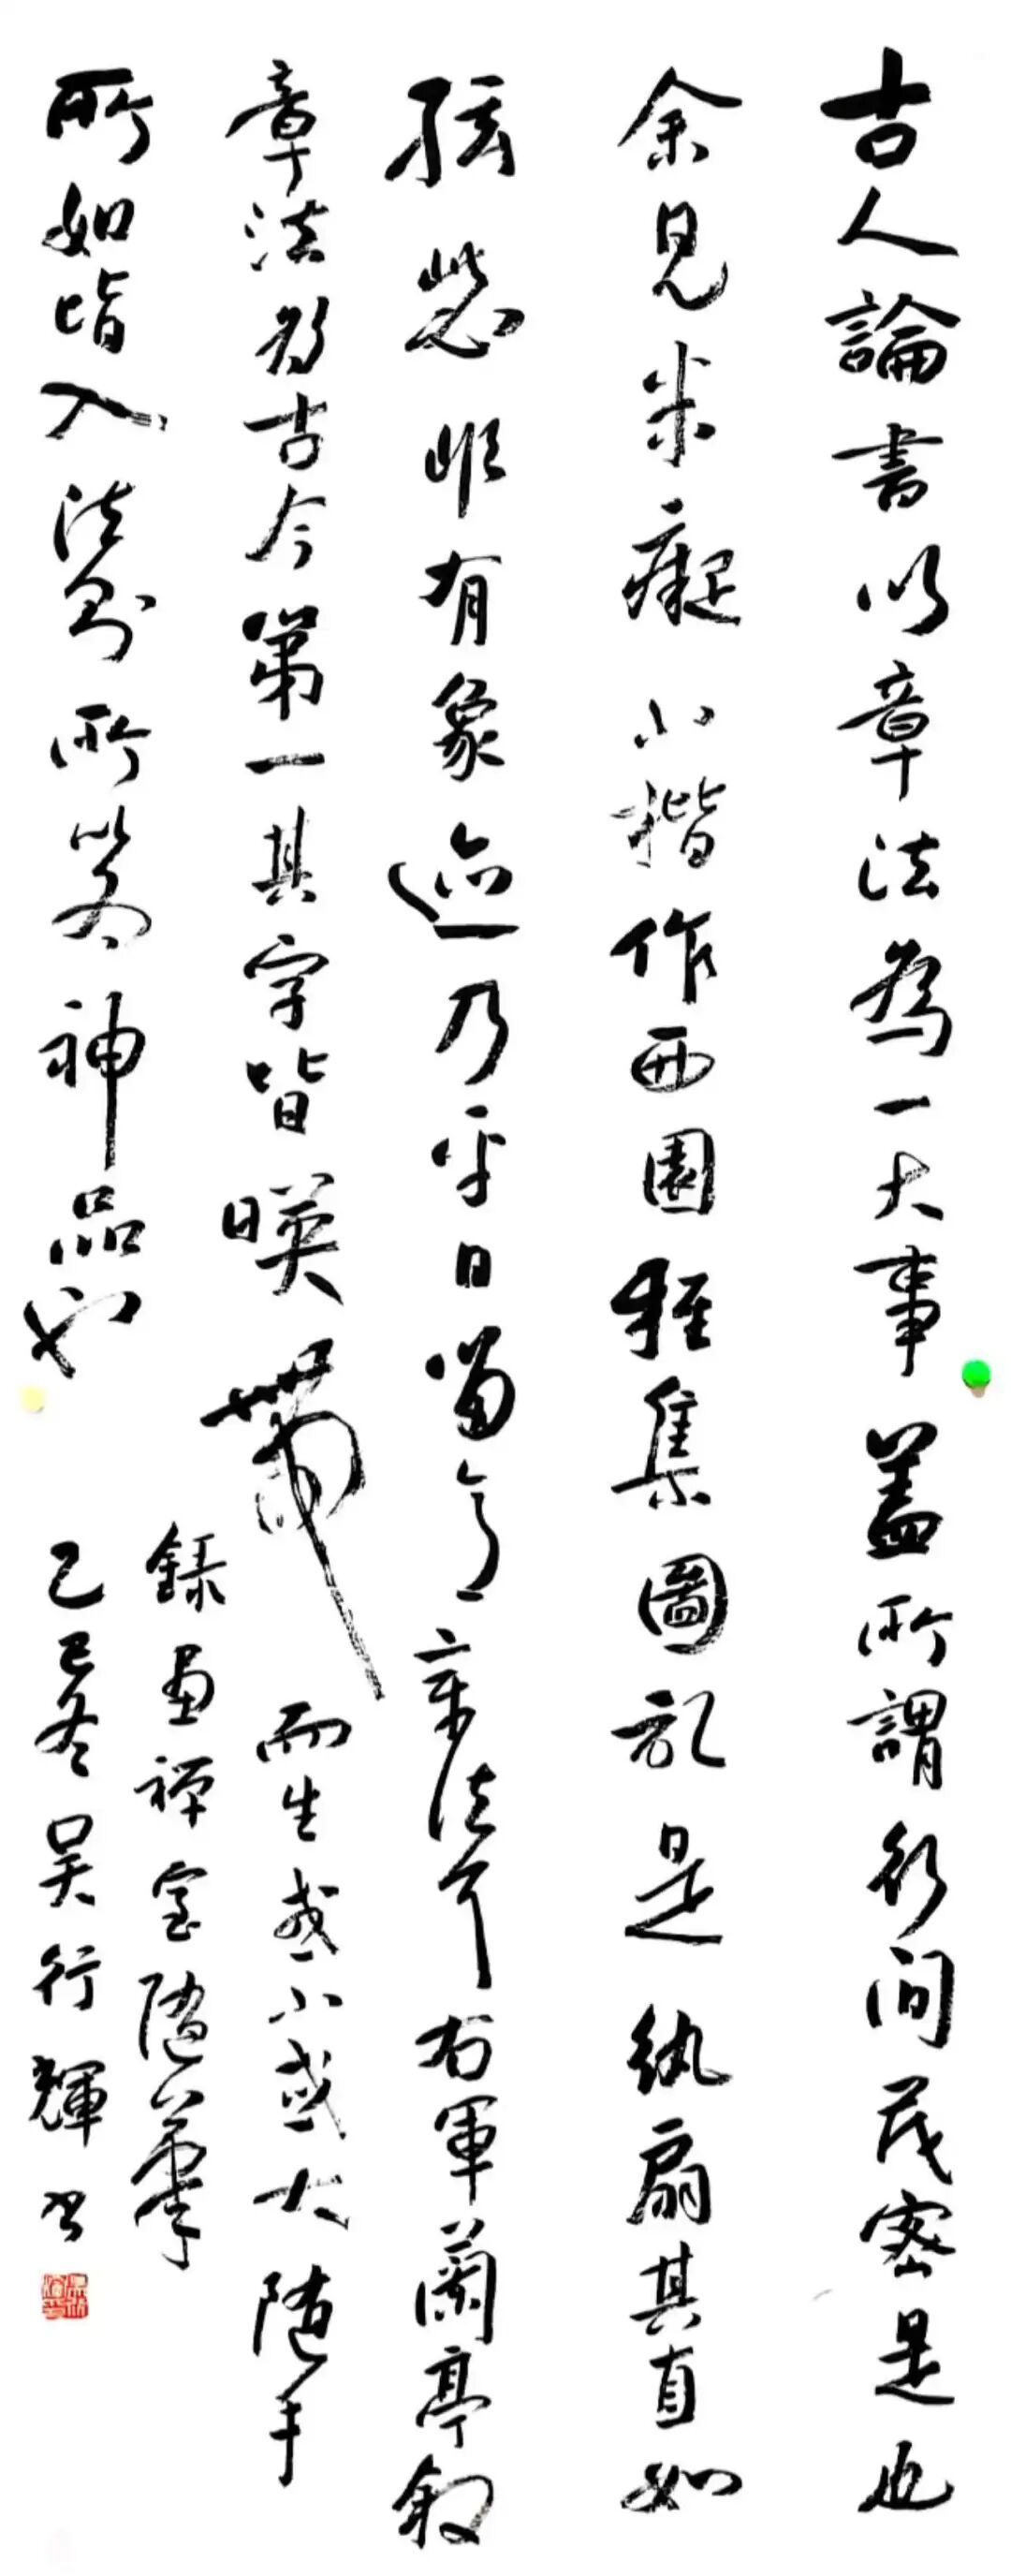 古人論書以章法為一大事蓋所謂行間茂密是也
余見米癡小楷作西園雅集圖記是紈扇其直如
弦此必非有象迹乃平日留意章法耳右軍蘭亭叙
章法為古今第一其字皆暎帶而生或小或大随手
所如皆入法則所以為神品也
錄畫禪室随筆
乙巳冬吴行輝书